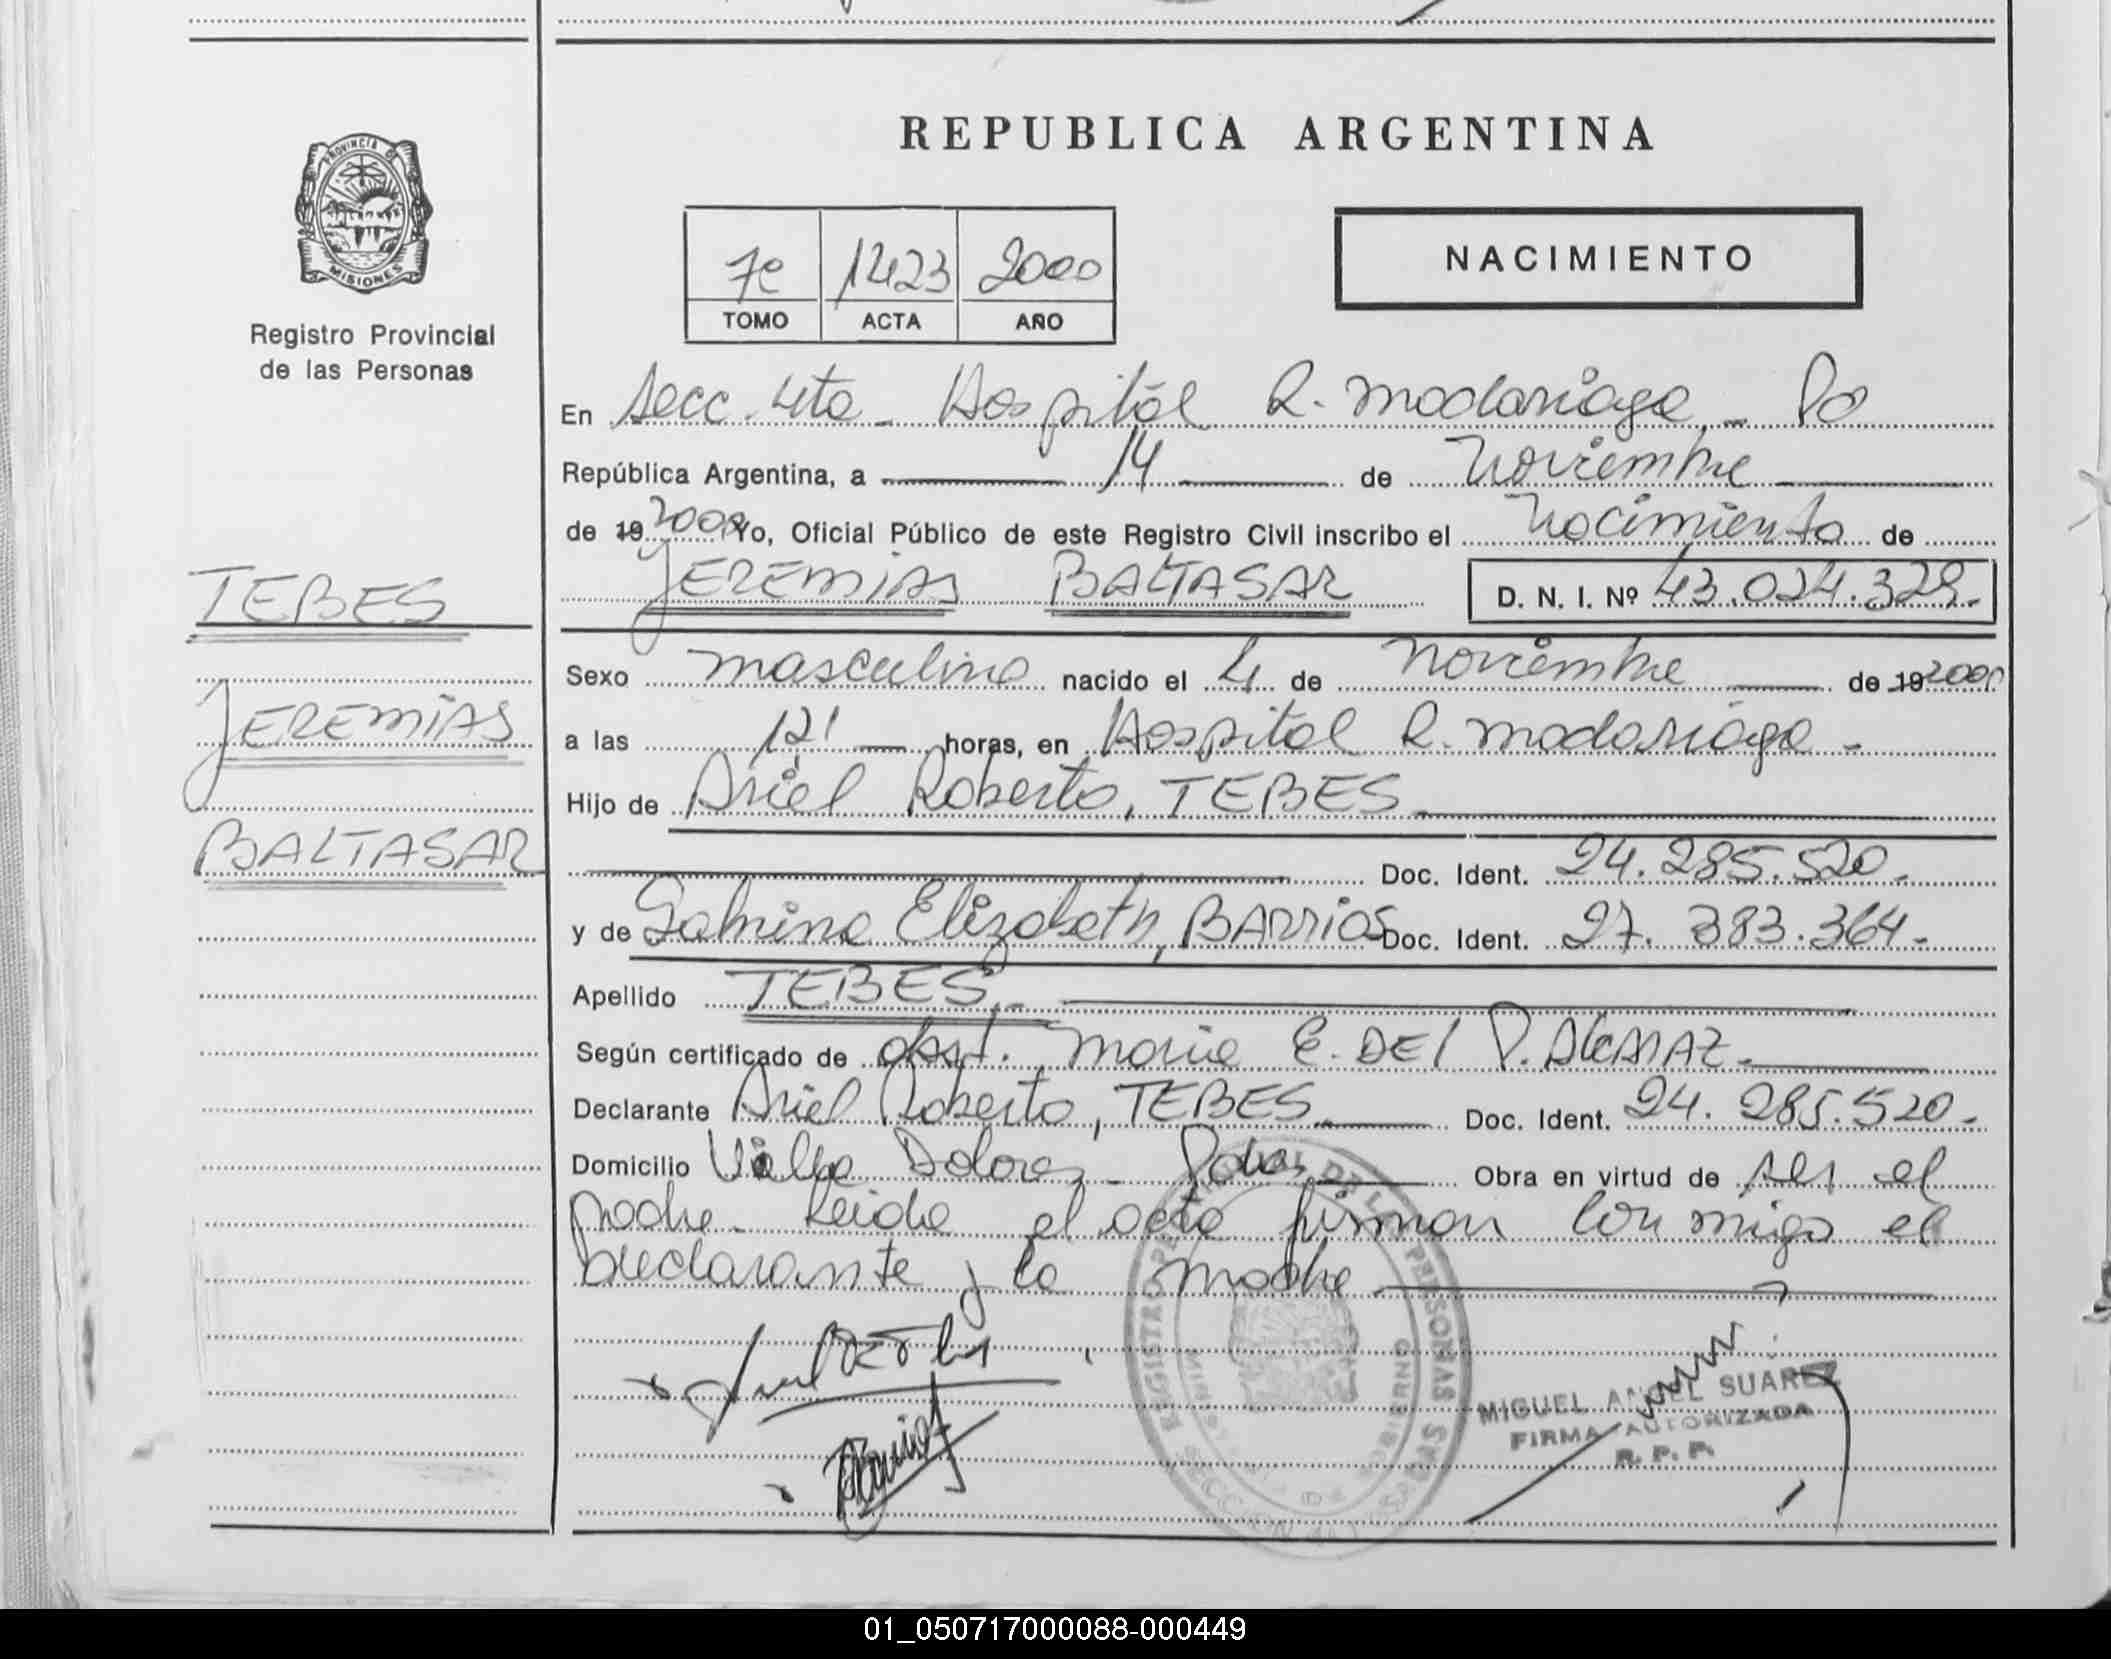 REPUBLICA ARGENTINA
PROVINCIA DE
MISIONES
Registro Provincial
de las Personas
7º 1423 2000
TOMO ACTA AÑO
NACIMIENTO
En Secc. 4ta - Hospital R. Madariaga - Po
República Argentina, a 14 de Noviembre
de 19 2000 Yo, Oficial Público de este Registro Civil inscribo el Nacimiento de
JEREMIAS BALTASAR D. N. I. Nº 43.024.329.-
TEBES
JEREMIAS
BALTASAR
Sexo masculino nacido el 4 de Noviembre de 19 2000
a las 12' horas, en Hospital R. Madariaga -
Hijo de Ariel Roberto, TEBES
Doc. Ident. 24.285.520.-
y de Sabrina Elizabeth, BARRIOS Doc. Ident. 27.383.364.-
Apellido TEBES.-
Según certificado de Obst. Maria E. DEL P. ALCARAZ.-
Declarante Ariel Roberto, TEBES. Doc. Ident. 24.285.520.-
Domicilio Villa Dolores - Pdas Obra en virtud de ser el
padre. Leida el acta firman conmigo el
declarante y la madre
REGISTRO PROVINCIAL DE LAS PERSONAS
MIGUEL ANGEL SUAREZ
FIRMA AUTORIZADA
R. P. P.
01_050717000088-000449